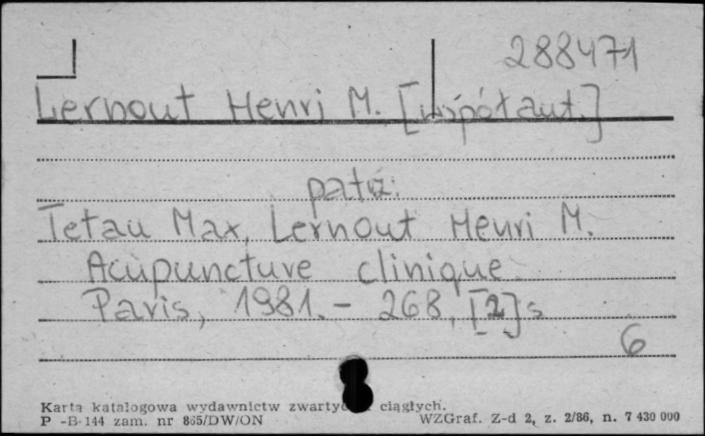 288471
Lernout Henri M. [współaut.]
patrz:
Tetau Max, Lernout Henri M.
Acupuncture clinique
Paris, 1981. - 268, [2] s
6
Karta katalogowa wydawnictw zwartych ciągłych.
P -B-144 zam. nr 865/DW/ON WZGraf. Z-d 2, z. 2/86, n. 7 430 000